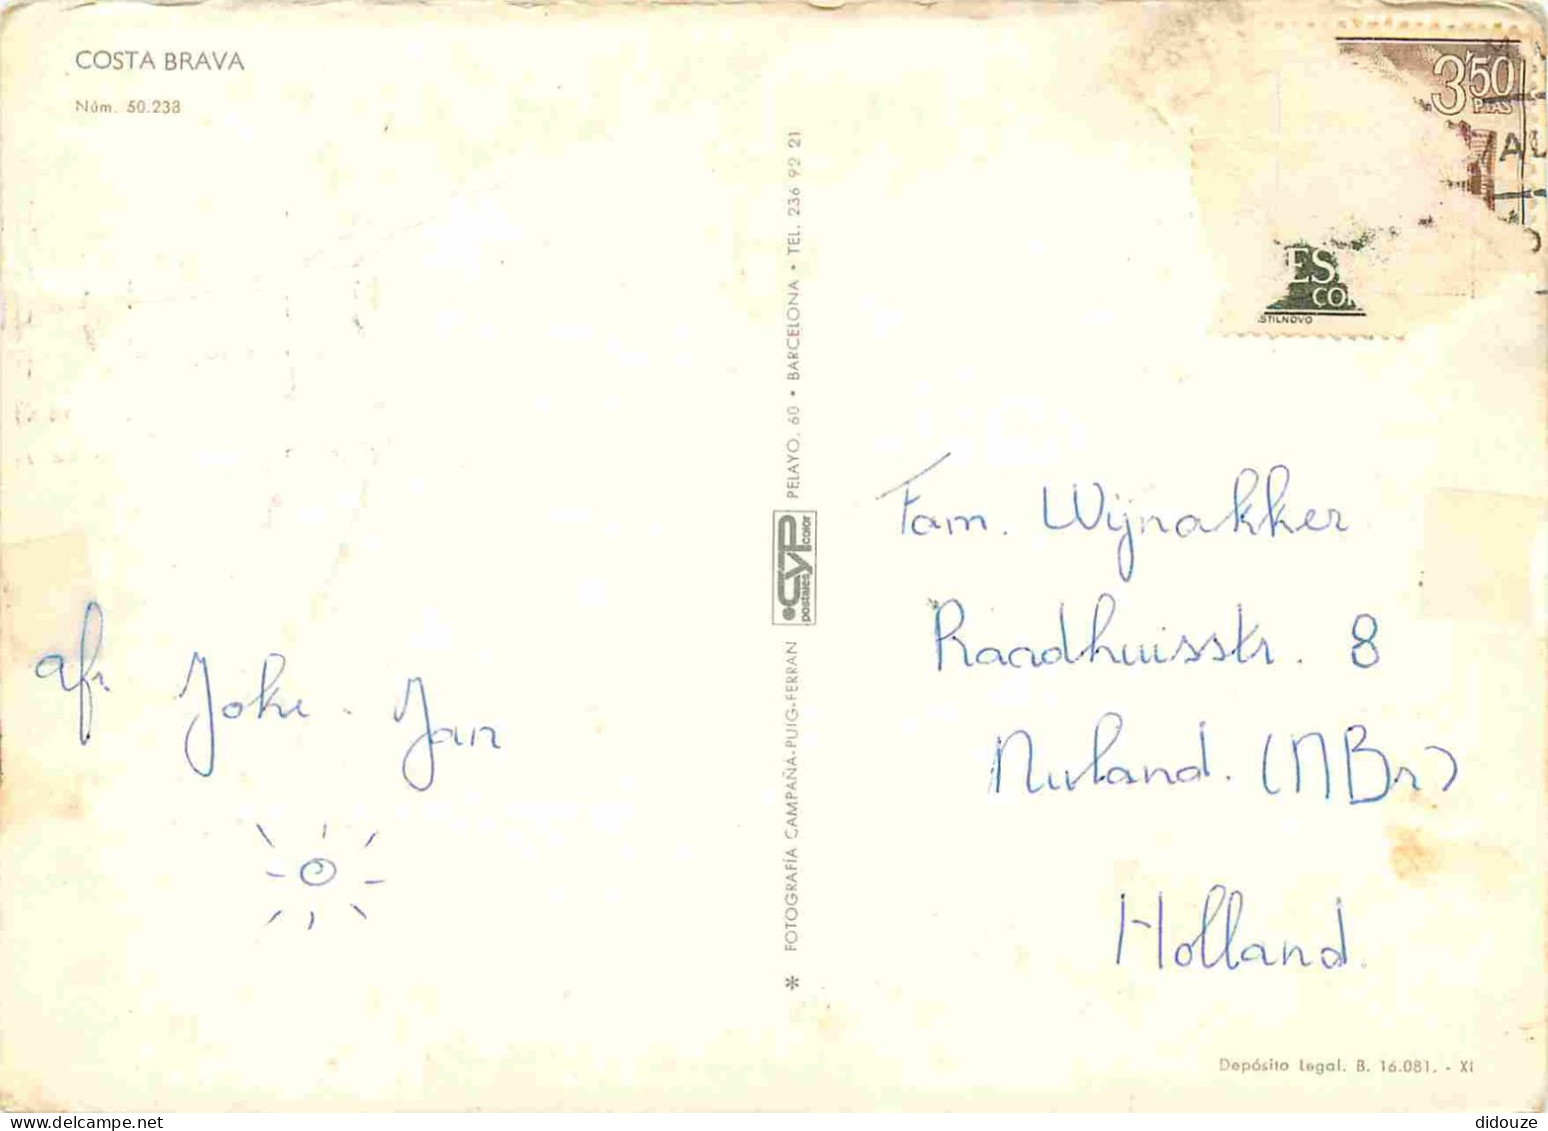 COSTA BRAVA
Núm. 50.238
3'50
PTAS
AL
ES
CO
STILNOVO
* FOTOGRAFÍA CAMPAÑA-PUIG-FERRAN
CYP
postales color
PELAYO, 60 • BARCELONA • TEL. 236 92 21
afr. Joke - Jan
Fam. Wijnakker
Raadhuisstr. 8
Nuland. (NBr)
Holland.
Depósito Legal. B. 16.081. - XI
didouze